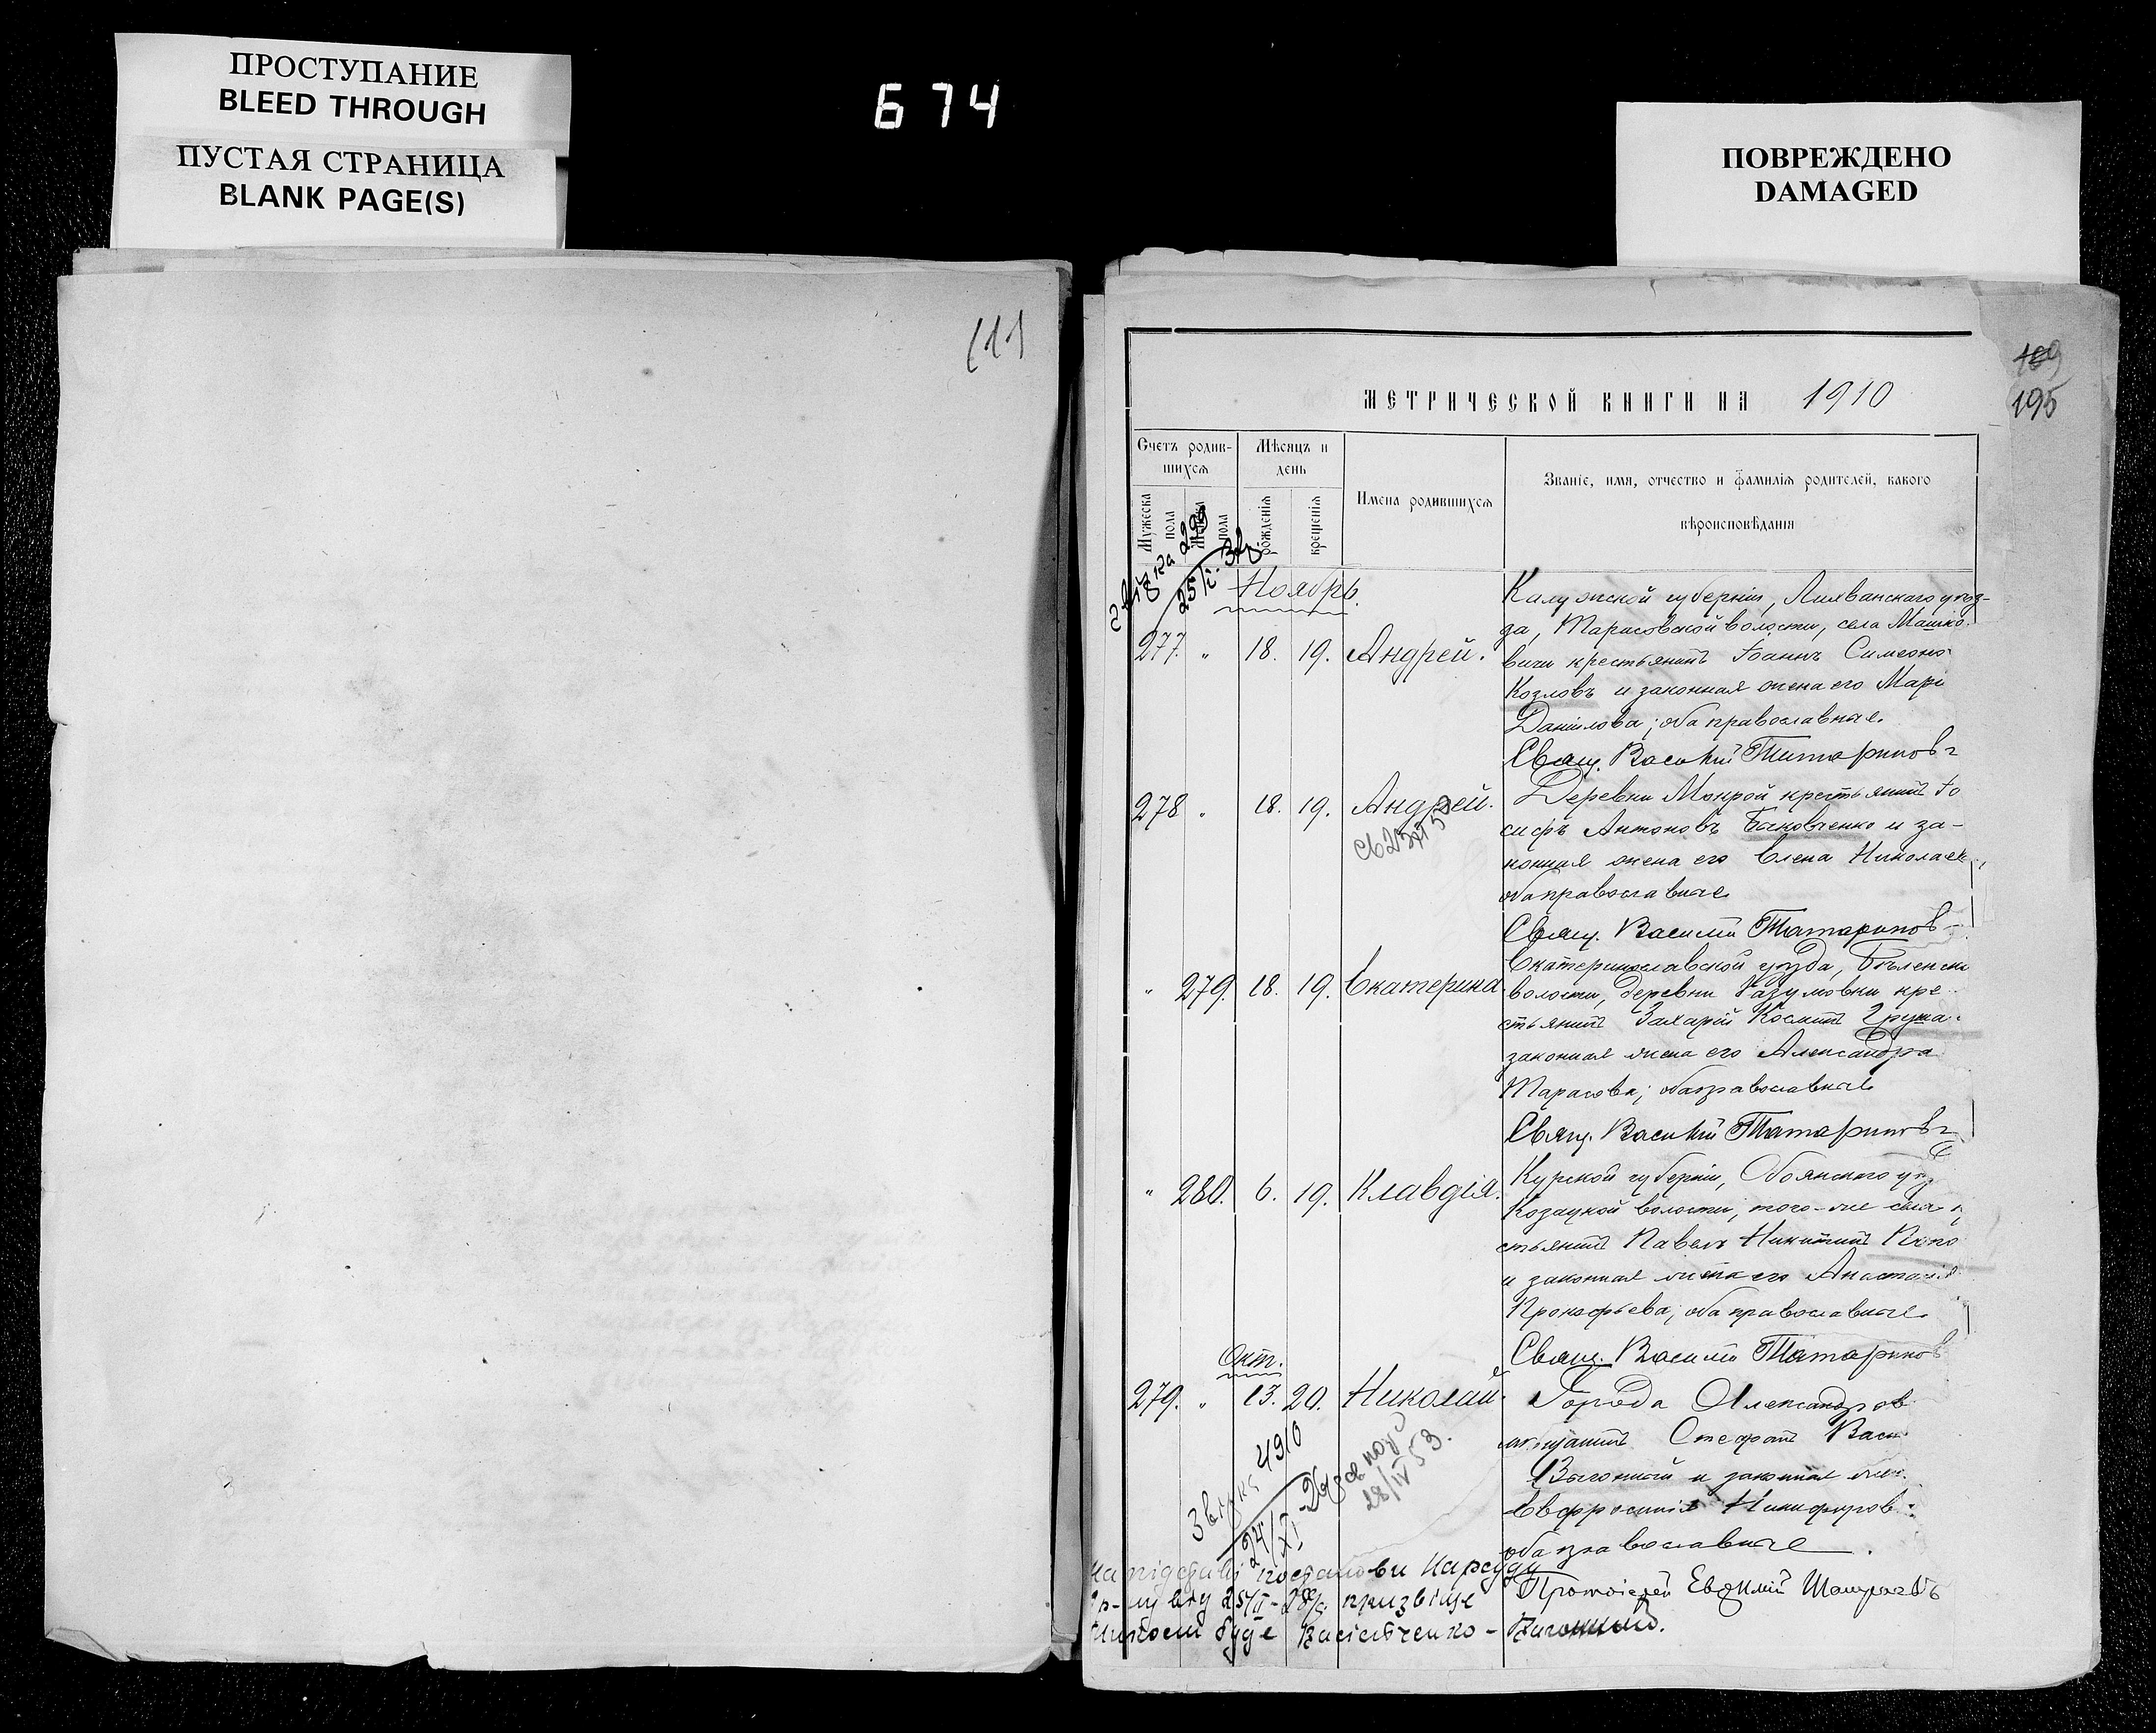 ПРОСТУПАНИЕ
BLEED THROUGH
ПУСТАЯ СТРАНИЦА
BLANK PAGE(S)
674
ПОВРЕЖДЕНО
DAMAGED
(11)
169
195
МЕТРИЧЕСКОЙ КНИГИ НА 1910
Счетъ родив-
шихся
Мужеска
пола
Женска
пола
Мѣсяцъ и
день
рожденія
крещенія
Имена родившихся
Званіе, имя, отчество и фамилія родителей, какого
вѣроисповѣданія
299
Ноябрь.
277. " 18. 19. Андрей.
Калужской губерніи, Лихванскаго уѣз-
да, Тарасовской волости, села Машко-
вичи крестьянинъ Іоаннъ Симеоно
Козловъ и законная жена его Марі
Даніилова; оба православные.
Свящ. Василій Татариновъ
278 " 18. 19. Андрей.
Деревни Мокрой крестьянинъ Іо
сифъ Антоновъ Баковченко и за-
конная жена его Елена Николаев
оба православные
Свящ. Василій Татаринов
" 279. 18. 19. Екатерина
Екатеринославской уѣзда, Бѣленьк
волости, деревни Разумовки кре-
стьянинъ Захарій Косминъ Груша
законная жена его Александра
Тарасова; оба православные
Свящ. Василій Татариновъ
" 280. 6. 19. Клавдія.
Курской губерніи, Обоянскаго уѣз
Козацкой волости, того-же села к
стьянинъ Павелъ Никитинъ
и законная жена его Анастасія
Прокофьева; оба православные.
Свящ. Василій Татаринов
Окт.
279. " 13. 20. Николай.
Города Александров
мѣщанинъ Стефанъ Васи
Выгонный и законная жен
Евфросинія Никифоров
оба православные.
Протоіерей Евѳимій
4910
24/XI
28/IV 53.
На підставі постанови Нарсуду
призвіще
буде Васильченко-